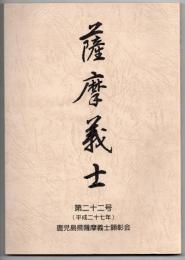 薩摩義士
第二十二号
（平成二十七年）
鹿児島県薩摩義士顕彰会